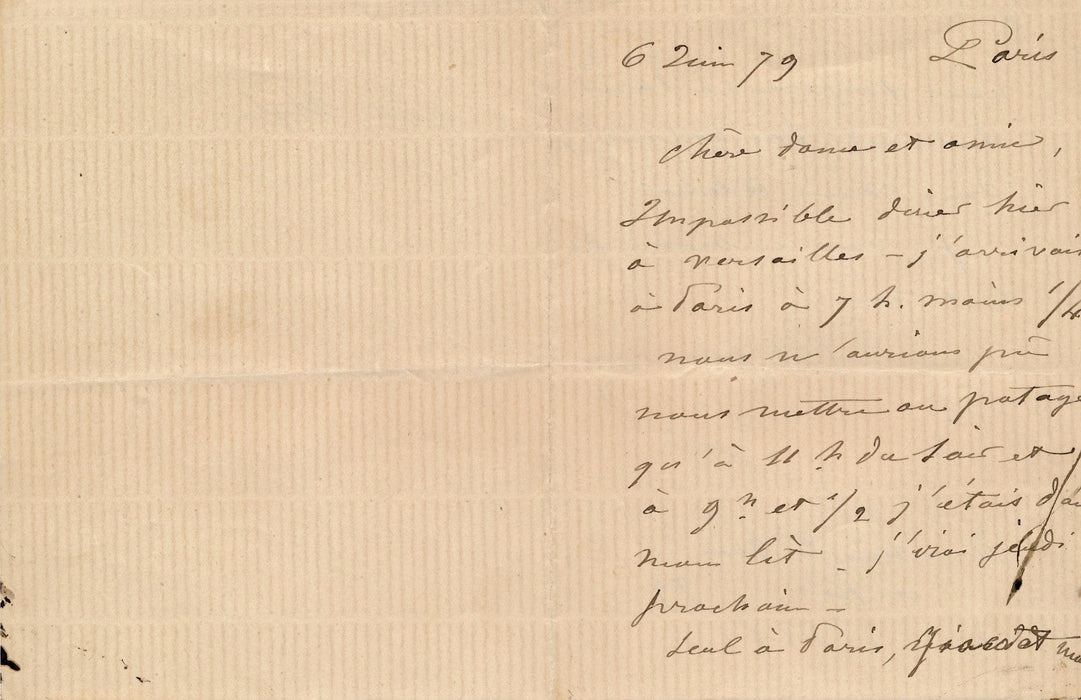 6 Juin 79 Paris
chère dame et amie,
Impossible diner hier
à versailles – j'arrivais
à Paris à 7 h. moins 1/4
nous n'aurions pû
nous mettre au potage
qu'à 11 h du soir et
à 9 h et 1/2 j'étais da
mon lit – j'irai jeudi
prochain –
seul à Paris,